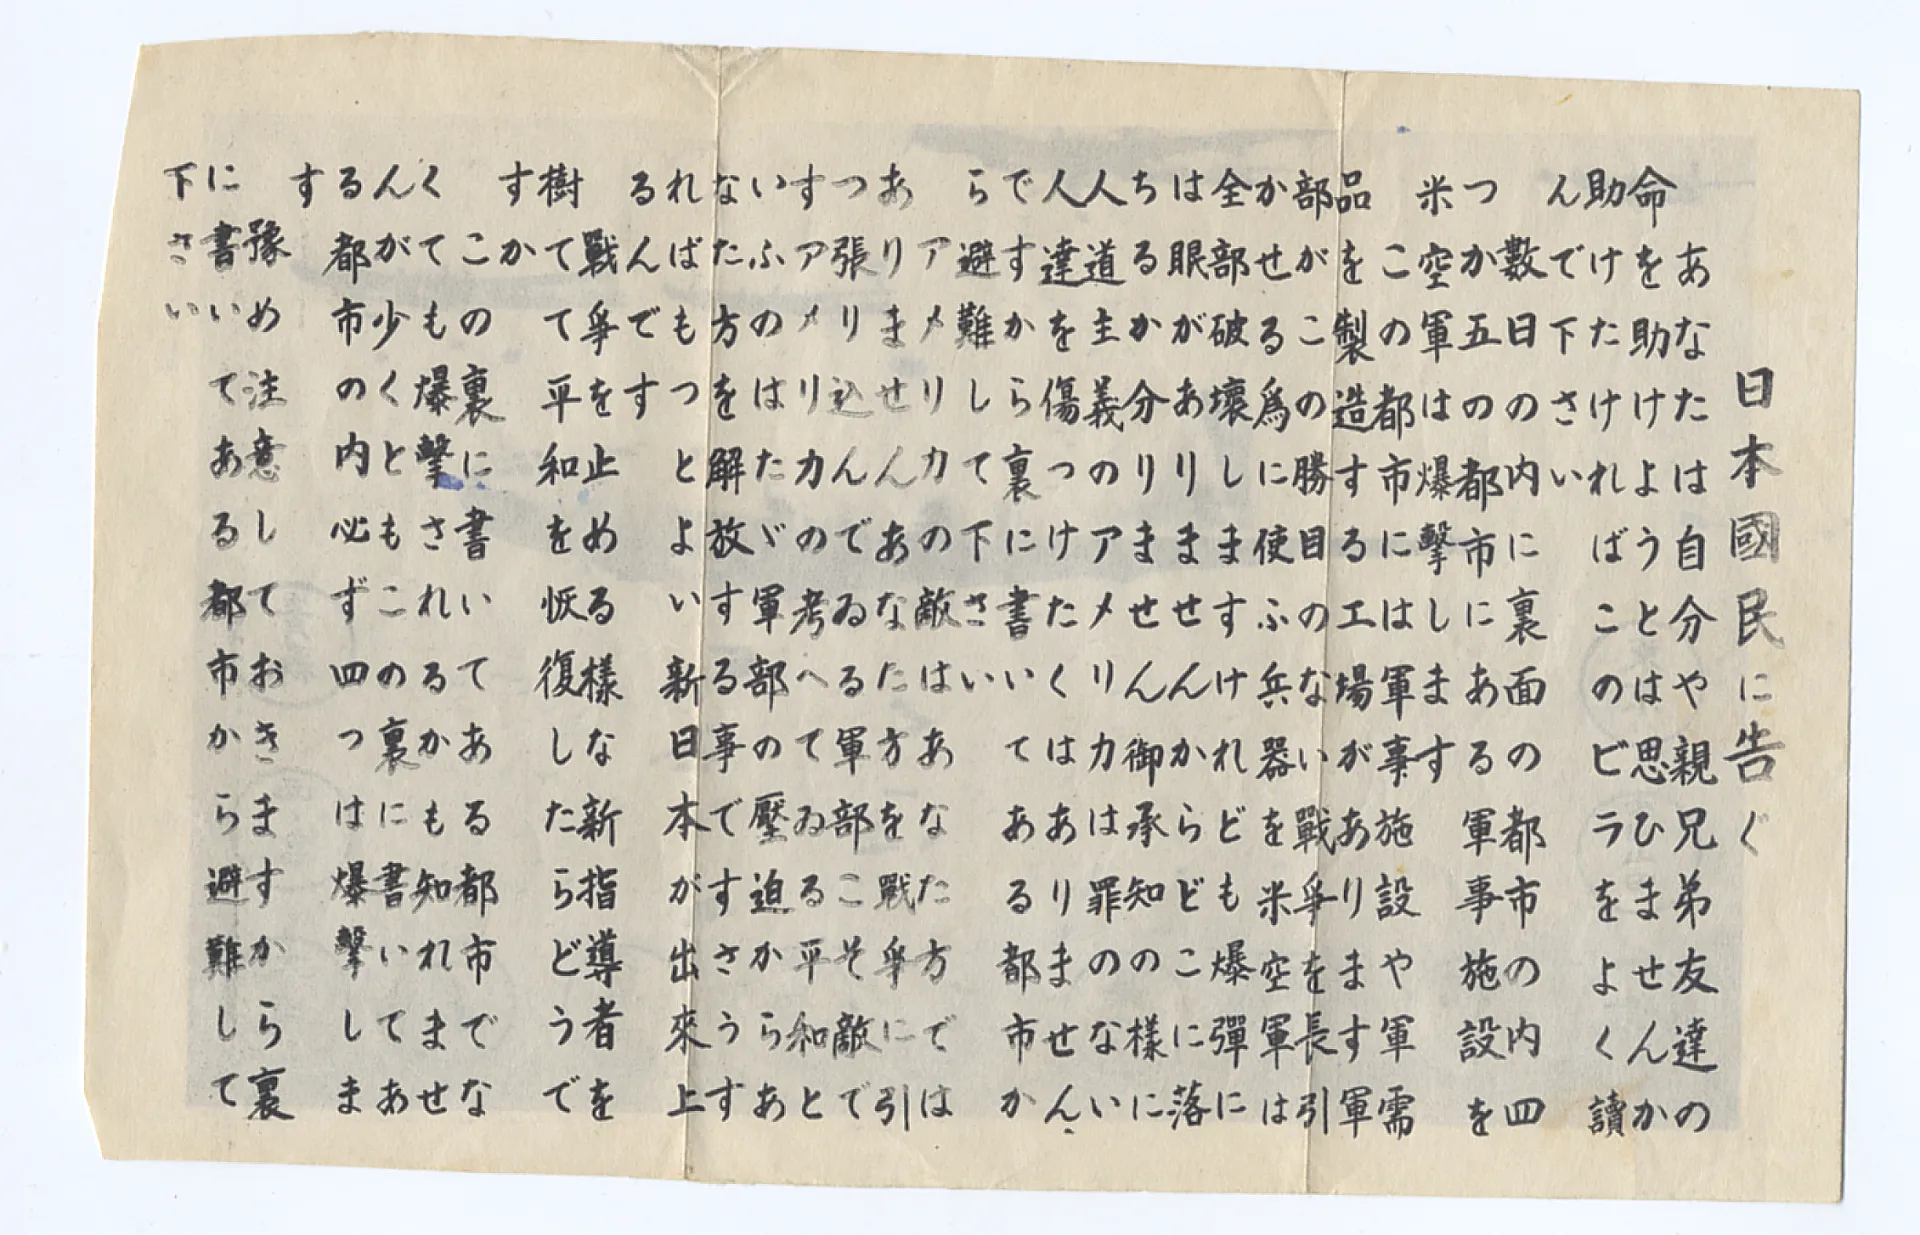 日本國民に告ぐ
あなたは自分や親兄弟友達の
命を助けようとは思ひませんか
助けたければこのビラをよく讀
んで下さい
數日の内に裏面の都市の内四
つか五の都市にある軍事施設を
米空軍は爆撃します
この都市には軍事施設や軍需
品を製造する工場があります軍
部がこの勝目のない戰爭を長引
かせる爲に使ふ兵器を米空軍は
全部破壞しますけれども爆彈に
は眼がありませんからどこに落
ちるか分りません御承知の樣に
人道主義のアメリカは罪のない
人達を傷つけたくはありません、
ですから裏に書いてある都市か
ら避難して下さい
アメリカの敵はあなた方では
ありませんあなた方を戰爭に引
つ張り込んでゐる軍部こそ敵で
すアメリカの考へてゐる平和と
いふのはたゞ軍部の壓迫からあ
なた方を解放する事ですさうす
ればもつとよい新日本が出來上
るんです
戰爭を止める樣な新指導者を
樹てて平和を恢復したらどうで
すか
この裏に書いてある都市でな
くても爆撃されるかも知れませ
んが少くともこの裏に書いてあ
る都市の内必ず四つは爆撃しま
す
豫め注意しておきますから裏
に書いてある都市から避難して
下さい